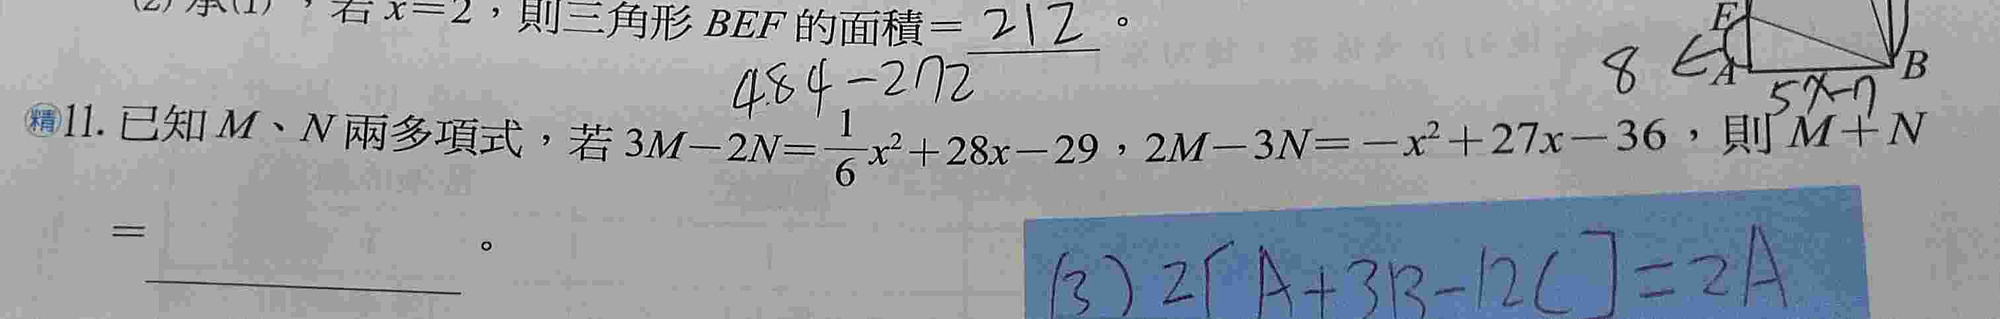 (2) 承(1)，若 x=2，則三角形 BEF 的面積=212。
484-272
E
A
B
8
5x-7
精11. 已知 M、N 兩多項式，若 3M-2N=\frac{1}{6}x²+28x-29，2M-3N=-x²+27x-36，則 M+N
=________。
(3) 2[A+3B-12C]=2A